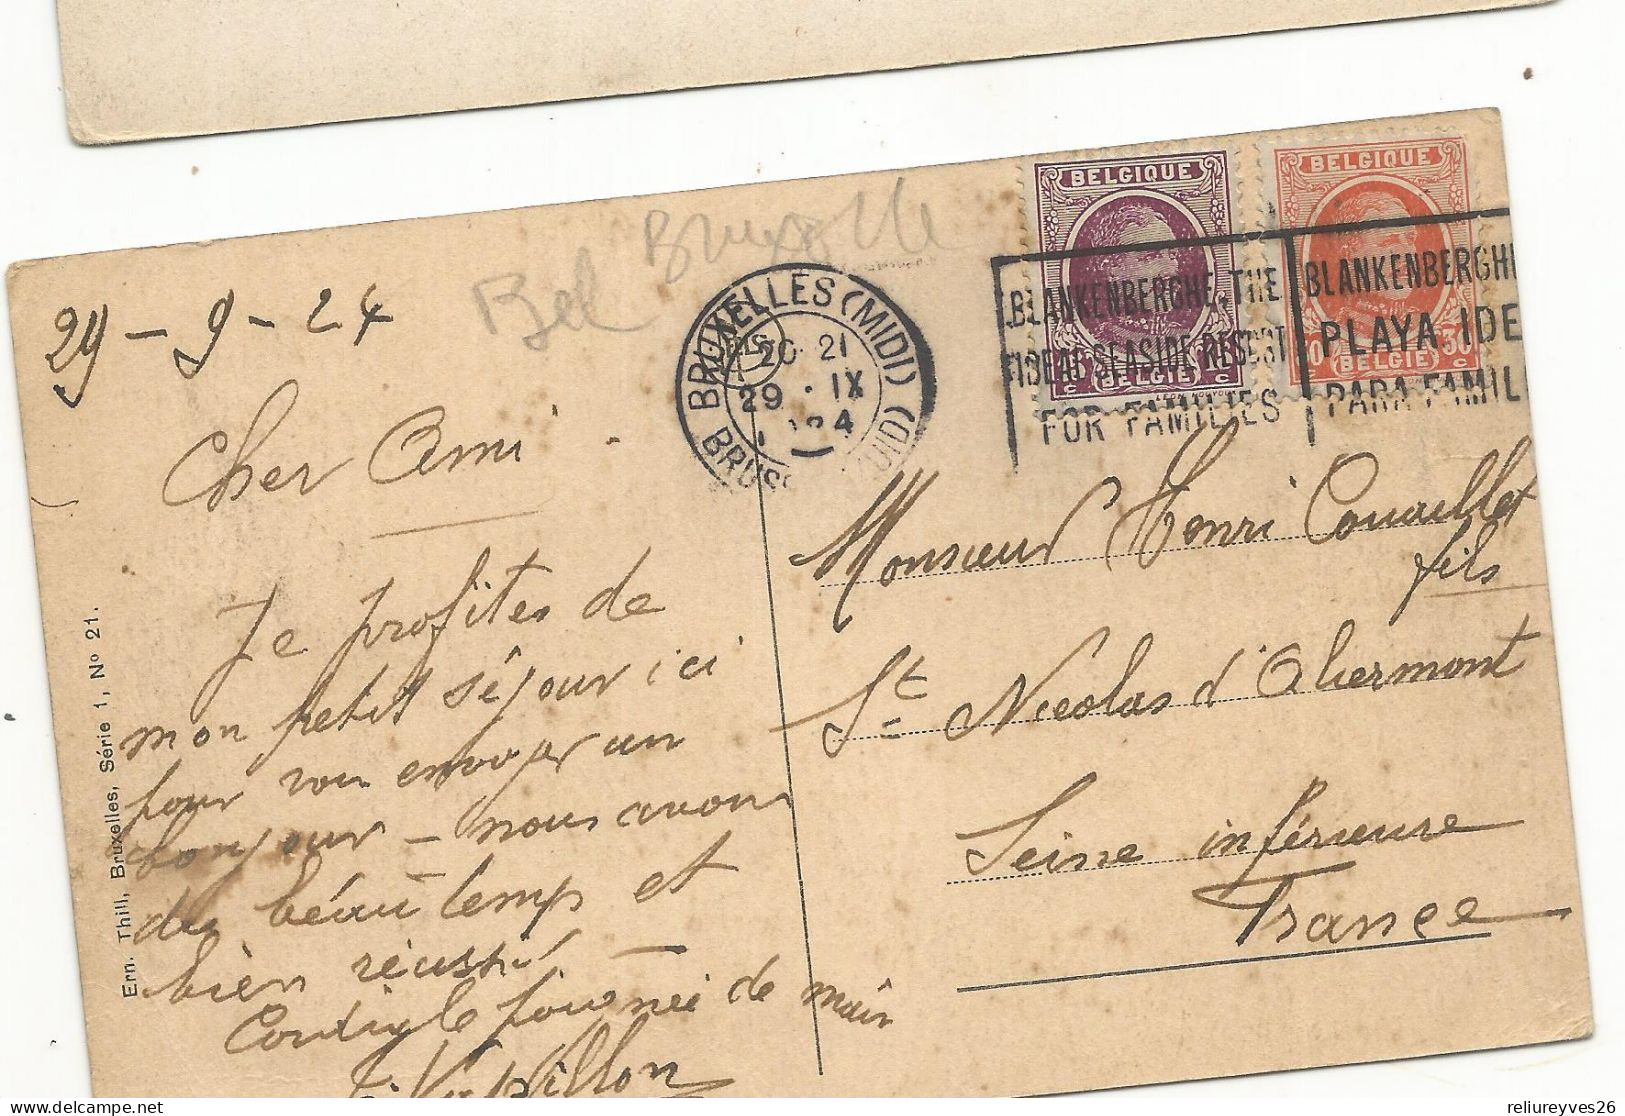 29-9-24
Bel Bruxelle
Cher Ami
Je profites de
mon petit séjour ici
pour vous envoyer un
bonjour - nous avons
du béau temps et
bien réussi
Cordiale poignée de main
BRUXELLES (MIDI)
20·21
29·IX
24
BRUSS
BELGIQUE
BELGIË
BELGIQUE
BELGIË
30
BLANKENBERGHE, THE
IDEAL SEASIDE RESORT
FOR FAMILIES
BLANKENBERGHE
PLAYA IDE
PARA FAMIL
Monsieur Henri Couaillet
fils
St Nicolas d'Aliermont
Seine inférieure
France
Ern. Thill, Bruxelles, Série 1, No 21.
delcampe.net
reliureyves26